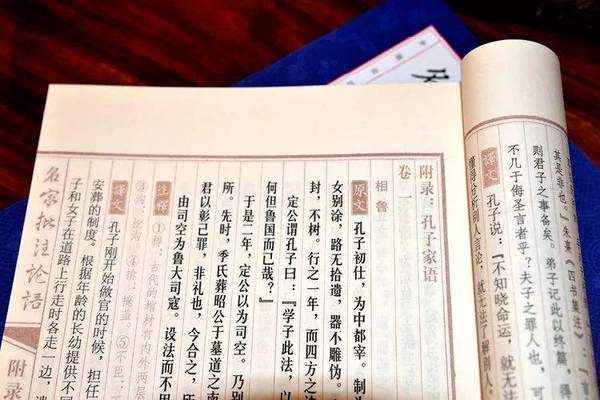 其是非也。”朱熹《四书集注》：
则君子之事备矣。弟子记此以终篇，得
不几于侮圣言者乎？夫子之罪人也，可
译文 孔子说：“不知晓命运，就无法
懂得分析别人言论，就无法了解别人。
附录：孔子家语
卷一
相鲁
原文 孔子初仕，为中都宰。制
女别涂，路无拾遗，器不雕伪。
封，不树。行之一年，而四方之
定公谓孔子曰：“学子此法，以
何但鲁国而已哉？”
于是二年，定公以为司空。乃别
所。先时，季氏葬昭公于墓道之南
君以彰己罪，非礼也，今合之，所
由司空为鲁大司寇。设法而不用
注释 ①椁：古代的棺材有内外两层
译文 孔子刚开始做官的时候，担任
安葬的制度。根据年龄的长幼提供不
子和女子在道路上行走时各走一边，
名家批注论语
附录